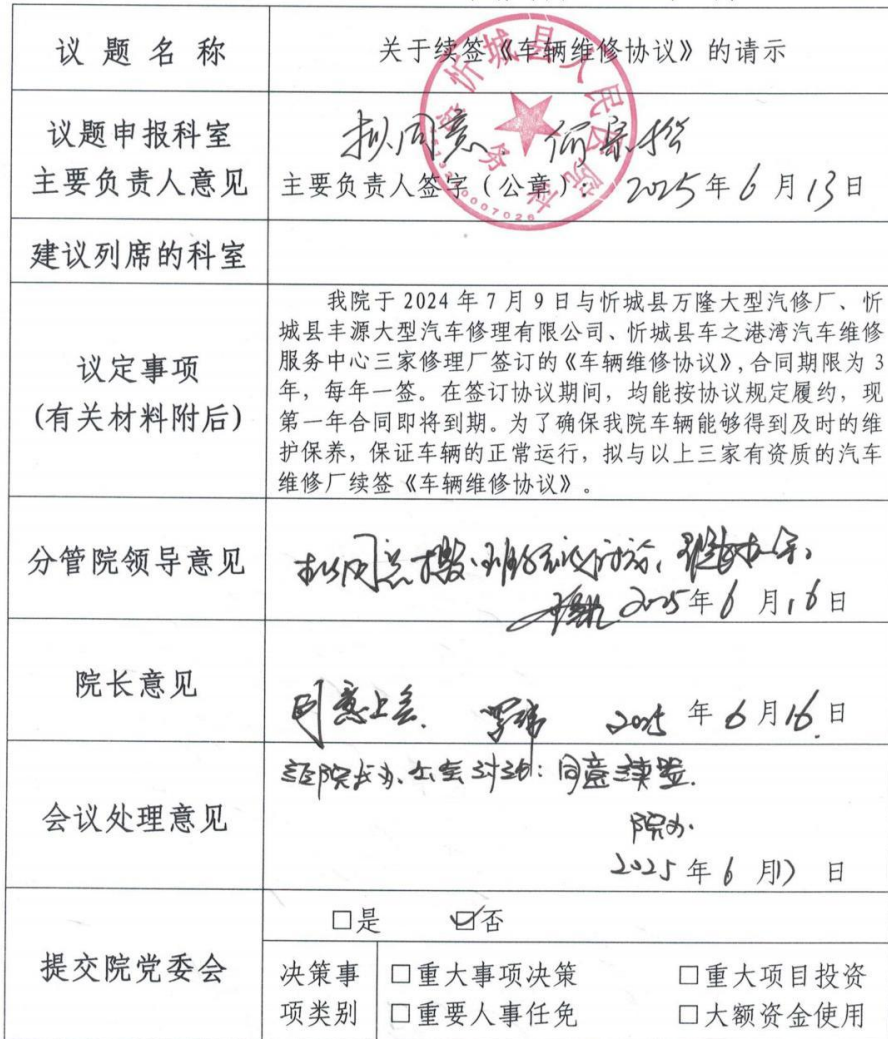 议题名称
关于续签《车辆维修协议》的请示
议题申报科室
主要负责人意见
拟同意
主要负责人签字（公章）：2025年6月13日
忻城县人民医院
总务科
建议列席的科室
议定事项
(有关材料附后)
我院于 2024 年 7 月 9 日与忻城县万隆大型汽修厂、忻
城县丰源大型汽车修理有限公司、忻城县车之港湾汽车维修
服务中心三家修理厂签订的《车辆维修协议》,合同期限为 3
年，每年一签。在签订协议期间，均能按协议规定履约，现
第一年合同即将到期。为了确保我院车辆能够得到及时的维
护保养，保证车辆的正常运行，拟与以上三家有资质的汽车
维修厂续签《车辆维修协议》。
分管院领导意见
拟同意
2025年6月16日
院长意见
同意上会.
2025年6月16日
会议处理意见
经院长办公会讨论：同意续签.
院办.
2025年6月17日
提交院党委会
□是 ☑否
决策事
项类别
□重大事项决策 □重大项目投资
□重要人事任免 □大额资金使用